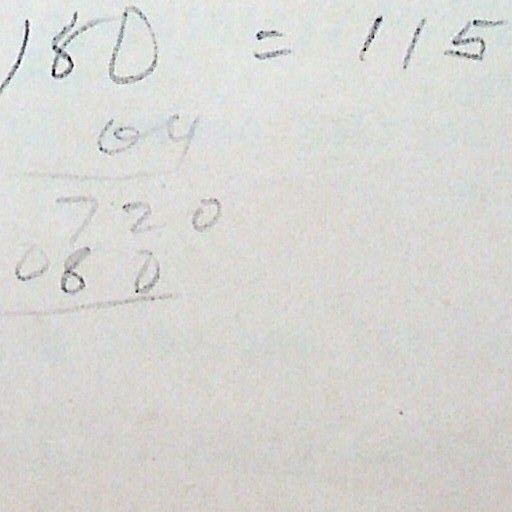 180 = 115
64
720
080